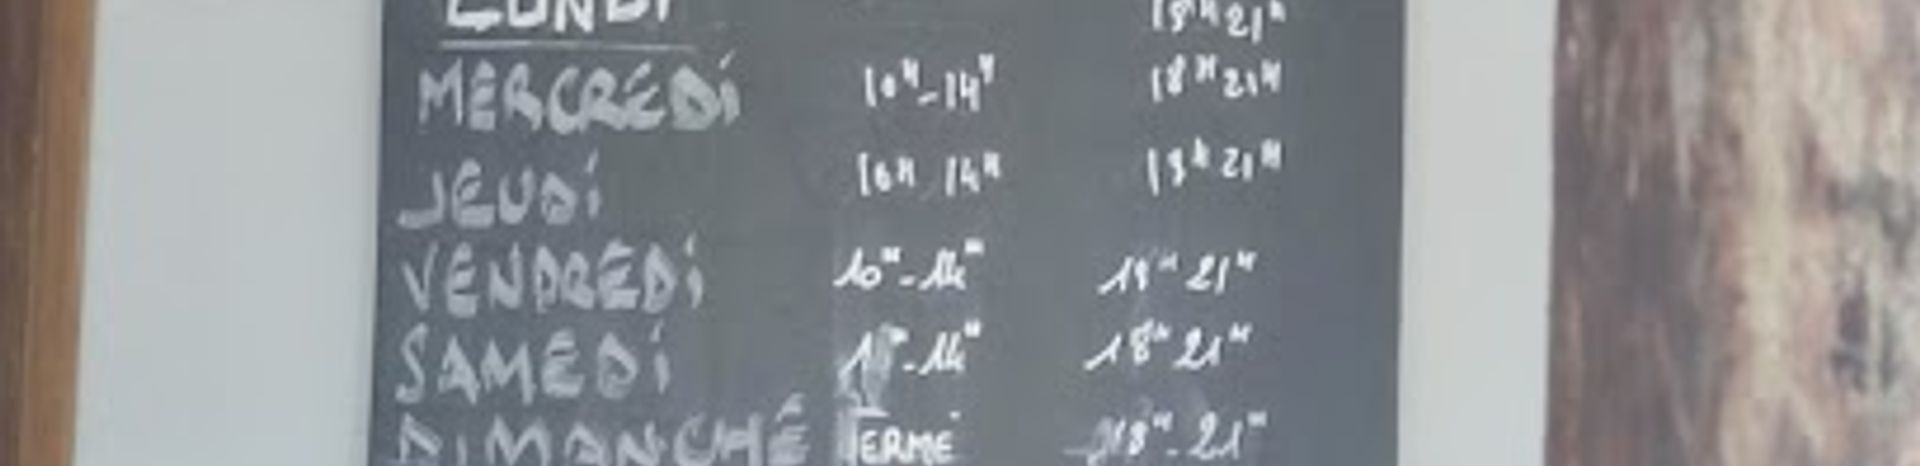 LUNDI 18H 21H
MERCREDI 10H-14H 18H 21H
JEUDI 10H 14H 18H 21H
VENDREDI 10H-14H 18H 21H
SAMEDI -14H 18H 21H
DIMANCHE FERMÉ 18H-21H